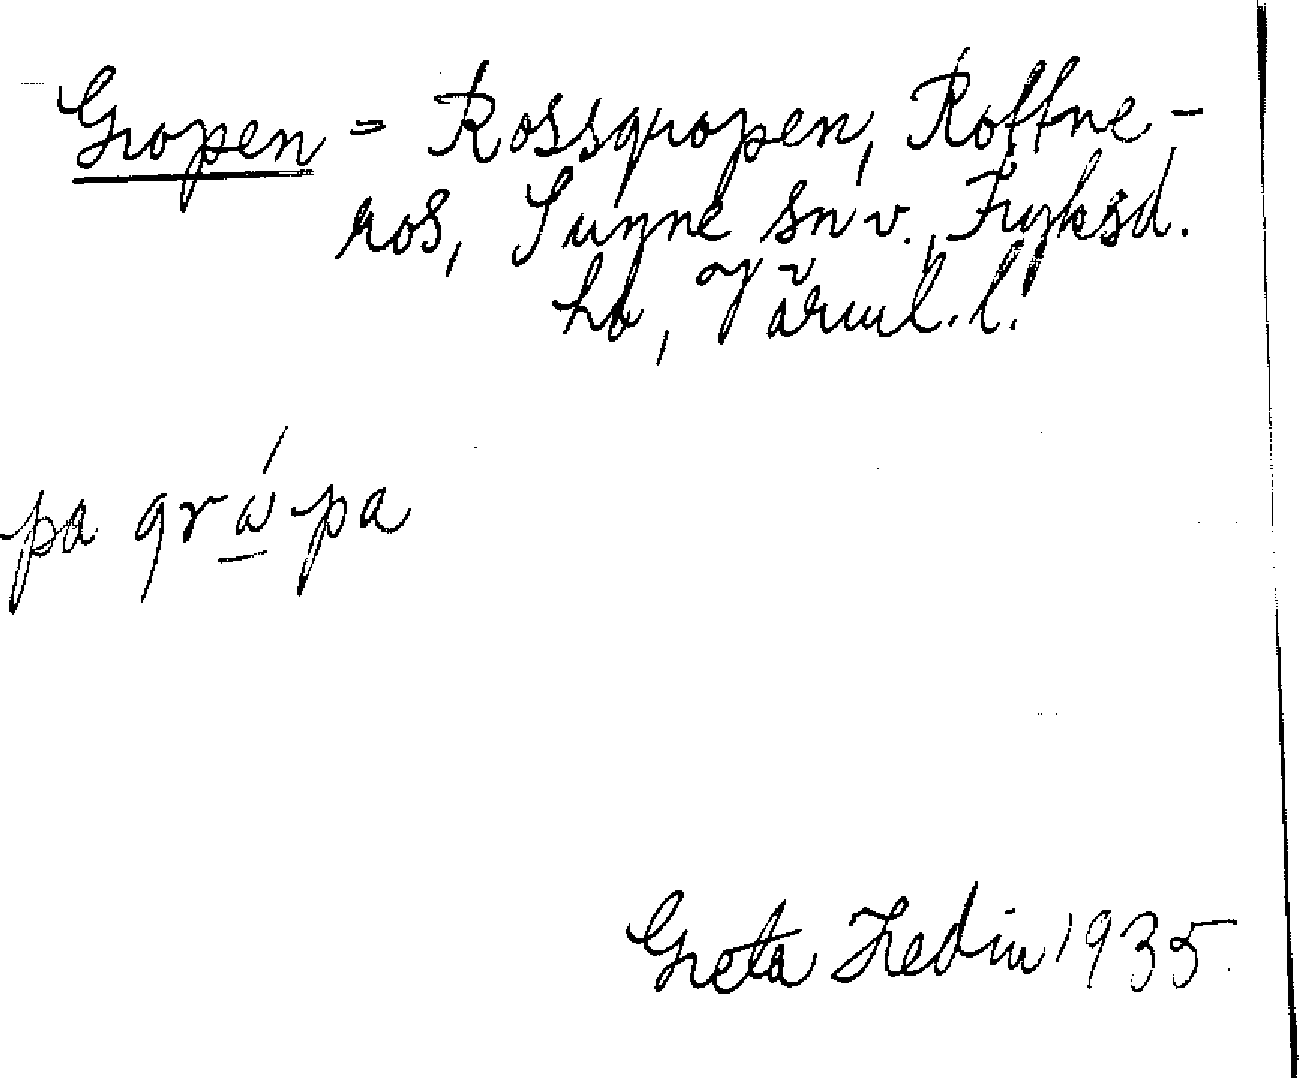 Gropen = Rossgropen, Rottne-
ros, Sunne sn v., Fryksd.
hd, Värml. l.
pa grá̱pa
Greta Hedin 1935.